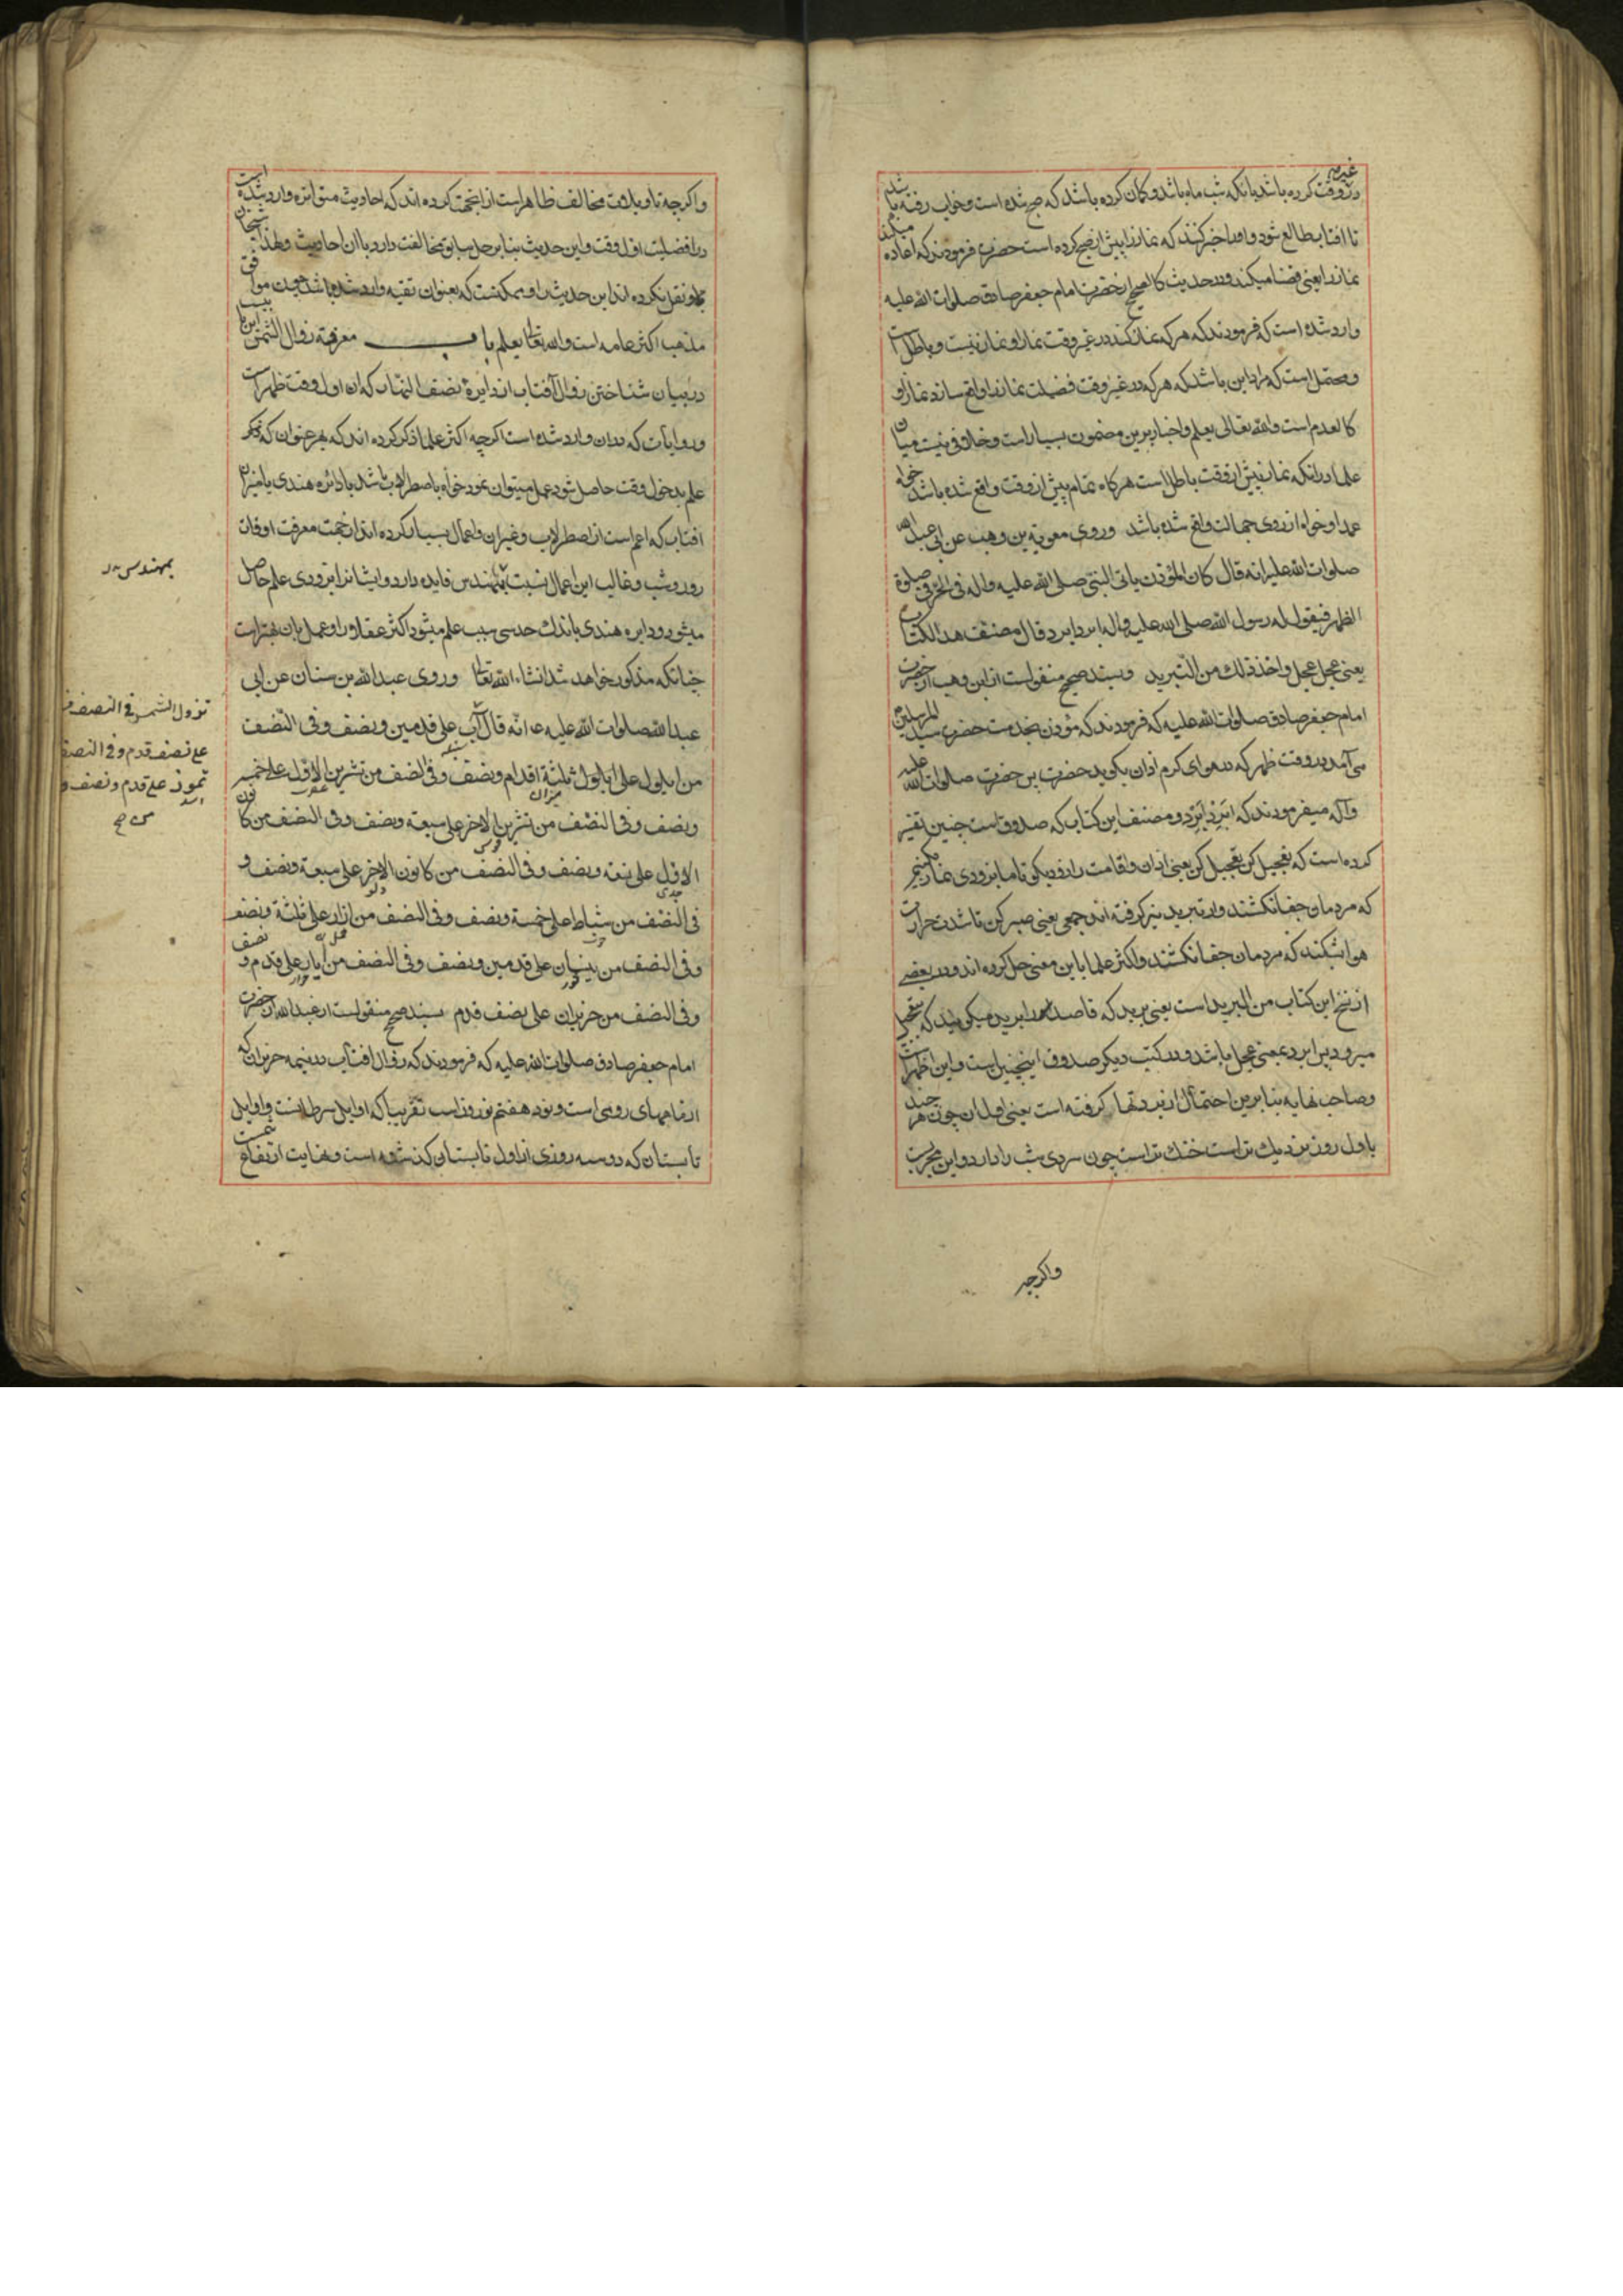 غیر
در وقت کرده باشد یا آنکه شب ماه باشد و کمان کرده باشد که صبح شده است و بخواب رفته باشد
تا افتاب طالع شود و او را خبر کنند که نماز را پیش از صبح کرده است حضرت فرمودند که اعاده میکند
نماز را یعنی قضا میکند و در حدیث کالصحیح از حضرت امام جعفر صادق صلوات الله علیه
وارد شده است که فرمودند که هر که نماز کند در غیر وقت نماز او نماز نیست و باطل است
و محتمل است که مراد این باشد که هر که در غیر وقت فضیلت نماز را واقع سازد نماز او
کالعدم است والله تعالی یعلم و اخبار برین مضمون بسیار است و خلافی نیست میان
علما در آنکه نماز پیش از وقت باطل است هر کاه تمام پیش از وقت واقع شده باشد خواه
عمدا و خواه از روی جهالت واقع شده باشد وروی معویة بن وهب عن ابی عبد الله
صلوات الله علیه انه قال کان المؤذن یاتی النبی صلی الله علیه واله فی الحر فی صلوة
الظهر فیقول له رسول الله صلی الله علیه واله ابرد ابرد قال مصنف هذا الکتاب
یعنی عجل عجل واخذ ذلک من التبرید و بسند صحیح منقول است از ابن وهب از حضرت
امام جعفر صادق صلوات الله علیه که فرمودند که مؤذن بخدمت حضرت سید المرسلین
می آمد در وقت ظهر که در هوای کرم اذان بکوید حضرت بس حضرت صلوات الله علیه
وآله میفرمودند که ابرد ابرد و مصنف این کتاب که صدوق است چنین تفسیر
کرده است که تعجیل کن تعجیل کن یعنی اذان و اقامت را زود بکو تا ما بزودی نماز کنیم
که مردمان جفا نکشند و از تبرید نیز کرفته اند جمعی یعنی صبر کن تا شدت حرارت
هوا بشکند که مردمان جفا نکشند و اکثر علما باین معنی حمل کرده اند و در بعضی
از نسخ این کتاب من البرید است یعنی برید که قاصد را برید میکویند که بتعجیل
میرود پس ابرد بمعنی عجل باشد و در کتب دیکر صدوق اینچنین است و این اظهر است
و صاحب نهایه بنا برین احتمال از برد نهار کرفته است یعنی اول آن چون هر چند
باول روز نزدیک تر است خنک تر است چون سردی شب را دارد و این مجرب است
واکرچه
واکرچه تاویلات مخالف ظاهر است از انجهت کرده اند که احادیث متواتره وارد شده است
در افضلیت اول وقت و این حدیث بنا بر حمل سابق مخالفت دارد با ان احادیث و لهذا شیخان
نقل نکرده اند این حدیث را و ممکنست که بعنوان تقیه وارد شده باشد چون موافق
مذهب اکثر عامه است والله تعالی یعلم باب معرفة زوال الشمس این باب
در بیان شناختن زوال آفتاب از دایرۀ نصف النهار که ان اول وقت ظهر است
و روایات که دران وارد شده است اکرچه اکثر علما ذکر کرده اند که بهر عنوان که
علم بدخول وقت حاصل شود عمل میتوان نمود خواه باصطرلاب باشد یا دائره هندی یا
افتاب که اعم است از اصطرلاب و غیر ان و اعمال بسیار کرده اند از جهت معرفت اوقات
روز و شب و غالب این اعمال نسبت بمهندس فایده دارد و ایشانرا بزودی علم حاصل
میشود و دایره هندی باندک حدسی سبب علم میشود اکثر عقلا را و عمل بان بهتر است
چنانکه مذکور خواهد شد انشاء الله تعالی وروی عبد الله بن سنان عن ابی
عبد الله صلوات الله علیه انه قال آب علی قدمین ونصف وفی النصف
من ایلول علی ثلثة اقدام ونصف وفی النصف من تشرین الاول علی خمسة
ونصف وفی النصف من تشرین الاخر علی سبعة ونصف وفی النصف من کانون
الاول علی تسعة ونصف وفی النصف من کانون الاخر علی سبعة ونصف و
فی النصف من شباط علی خمسة ونصف وفی النصف من ازار علی ثلثة ونصف
وفی النصف من نیسان علی قدمین ونصف وفی النصف من أیار علی قدم و نصف
وفی النصف من حزیران علی نصف قدم بسند صحیح منقولست از عبد الله از حضرت
امام جعفر صادق صلوات الله علیه که فرمودند که زوال افتاب در نیمه حزیران که
از ماههای رومی است و نود هفتم نوروز است تقریبا که اوایل سرطانست و اوایل
تابستان که دو سه روزی از اول تابستان کذشته است و نهایت ارتفاع
بمهندس
تزول الشمس فی النصف
علی نصف قدم وفی النصف
تموز علی قدم ونصف و
اسد
صح